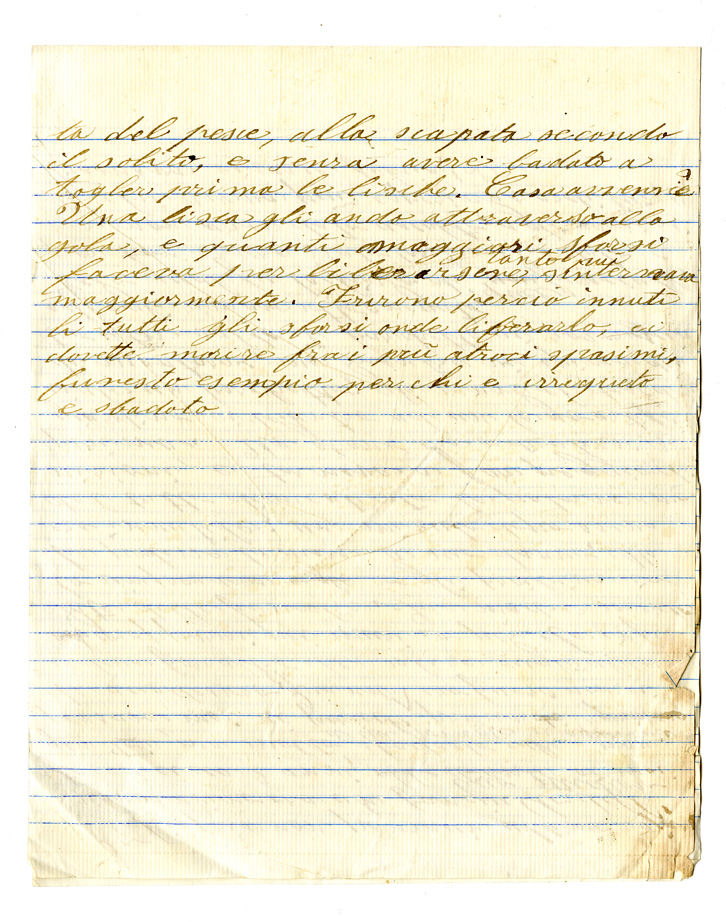 ta del pesce, alla scapata secondo
il solito, e senza avere badato a
togler prima le lische. Cosa avvenne?
Una lisca gli ando attraverso alla
gola, e quanti maggiori sforsi
tanto più
faceva per liberarsene, sinternava
maggiormente. Furono perciò innuti
li tutti gli sforsi onde liberarlo, ei
dovette morire frai più atroci spasimi,
funesto esempio per chi e irrequeto
e sbadato